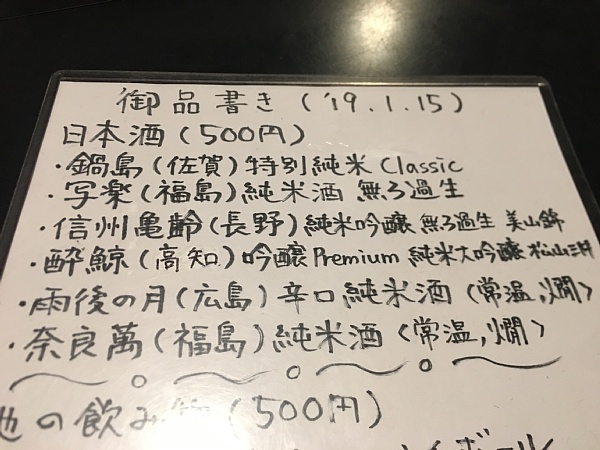 御品書き('19.1.15)
日本酒(500円)
・鍋島(佐賀)特別純米 Classic
・写楽(福島)純米酒 無ろ過生
・信州亀齢(長野)純米吟醸 無ろ過生 美山錦
・酔鯨(高知)吟醸Premium 純米大吟醸 松山三井
・雨後の月(広島)辛口純米酒(常温,燗)
・奈良萬(福島)純米酒(常温,燗)
の飲み物(500円)
ボール